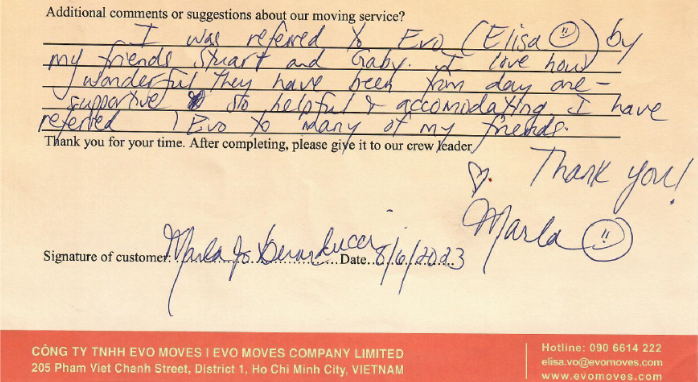 Additional comments or suggestions about our moving service?
I was referred to Evo (Elisa ☺) by
my friends Stuart and Gaby. I love how
wonderful they have been from day one -
supportive so helpful & accomodating I have
referred Evo to many of my friends.
Thank you for your time. After completing, please give it to our crew leader
♡. Thank you!
Marla ☺
Signature of customer: Marla Jo Date 8/6/2023
CÔNG TY TNHH EVO MOVES I EVO MOVES COMPANY LIMITED
205 Pham Viet Chanh Street, District 1, Ho Chi Minh City, VIETNAM
Hotline: 090 6614 222
elisa.vo@evomoves.com
www.evomoves.com